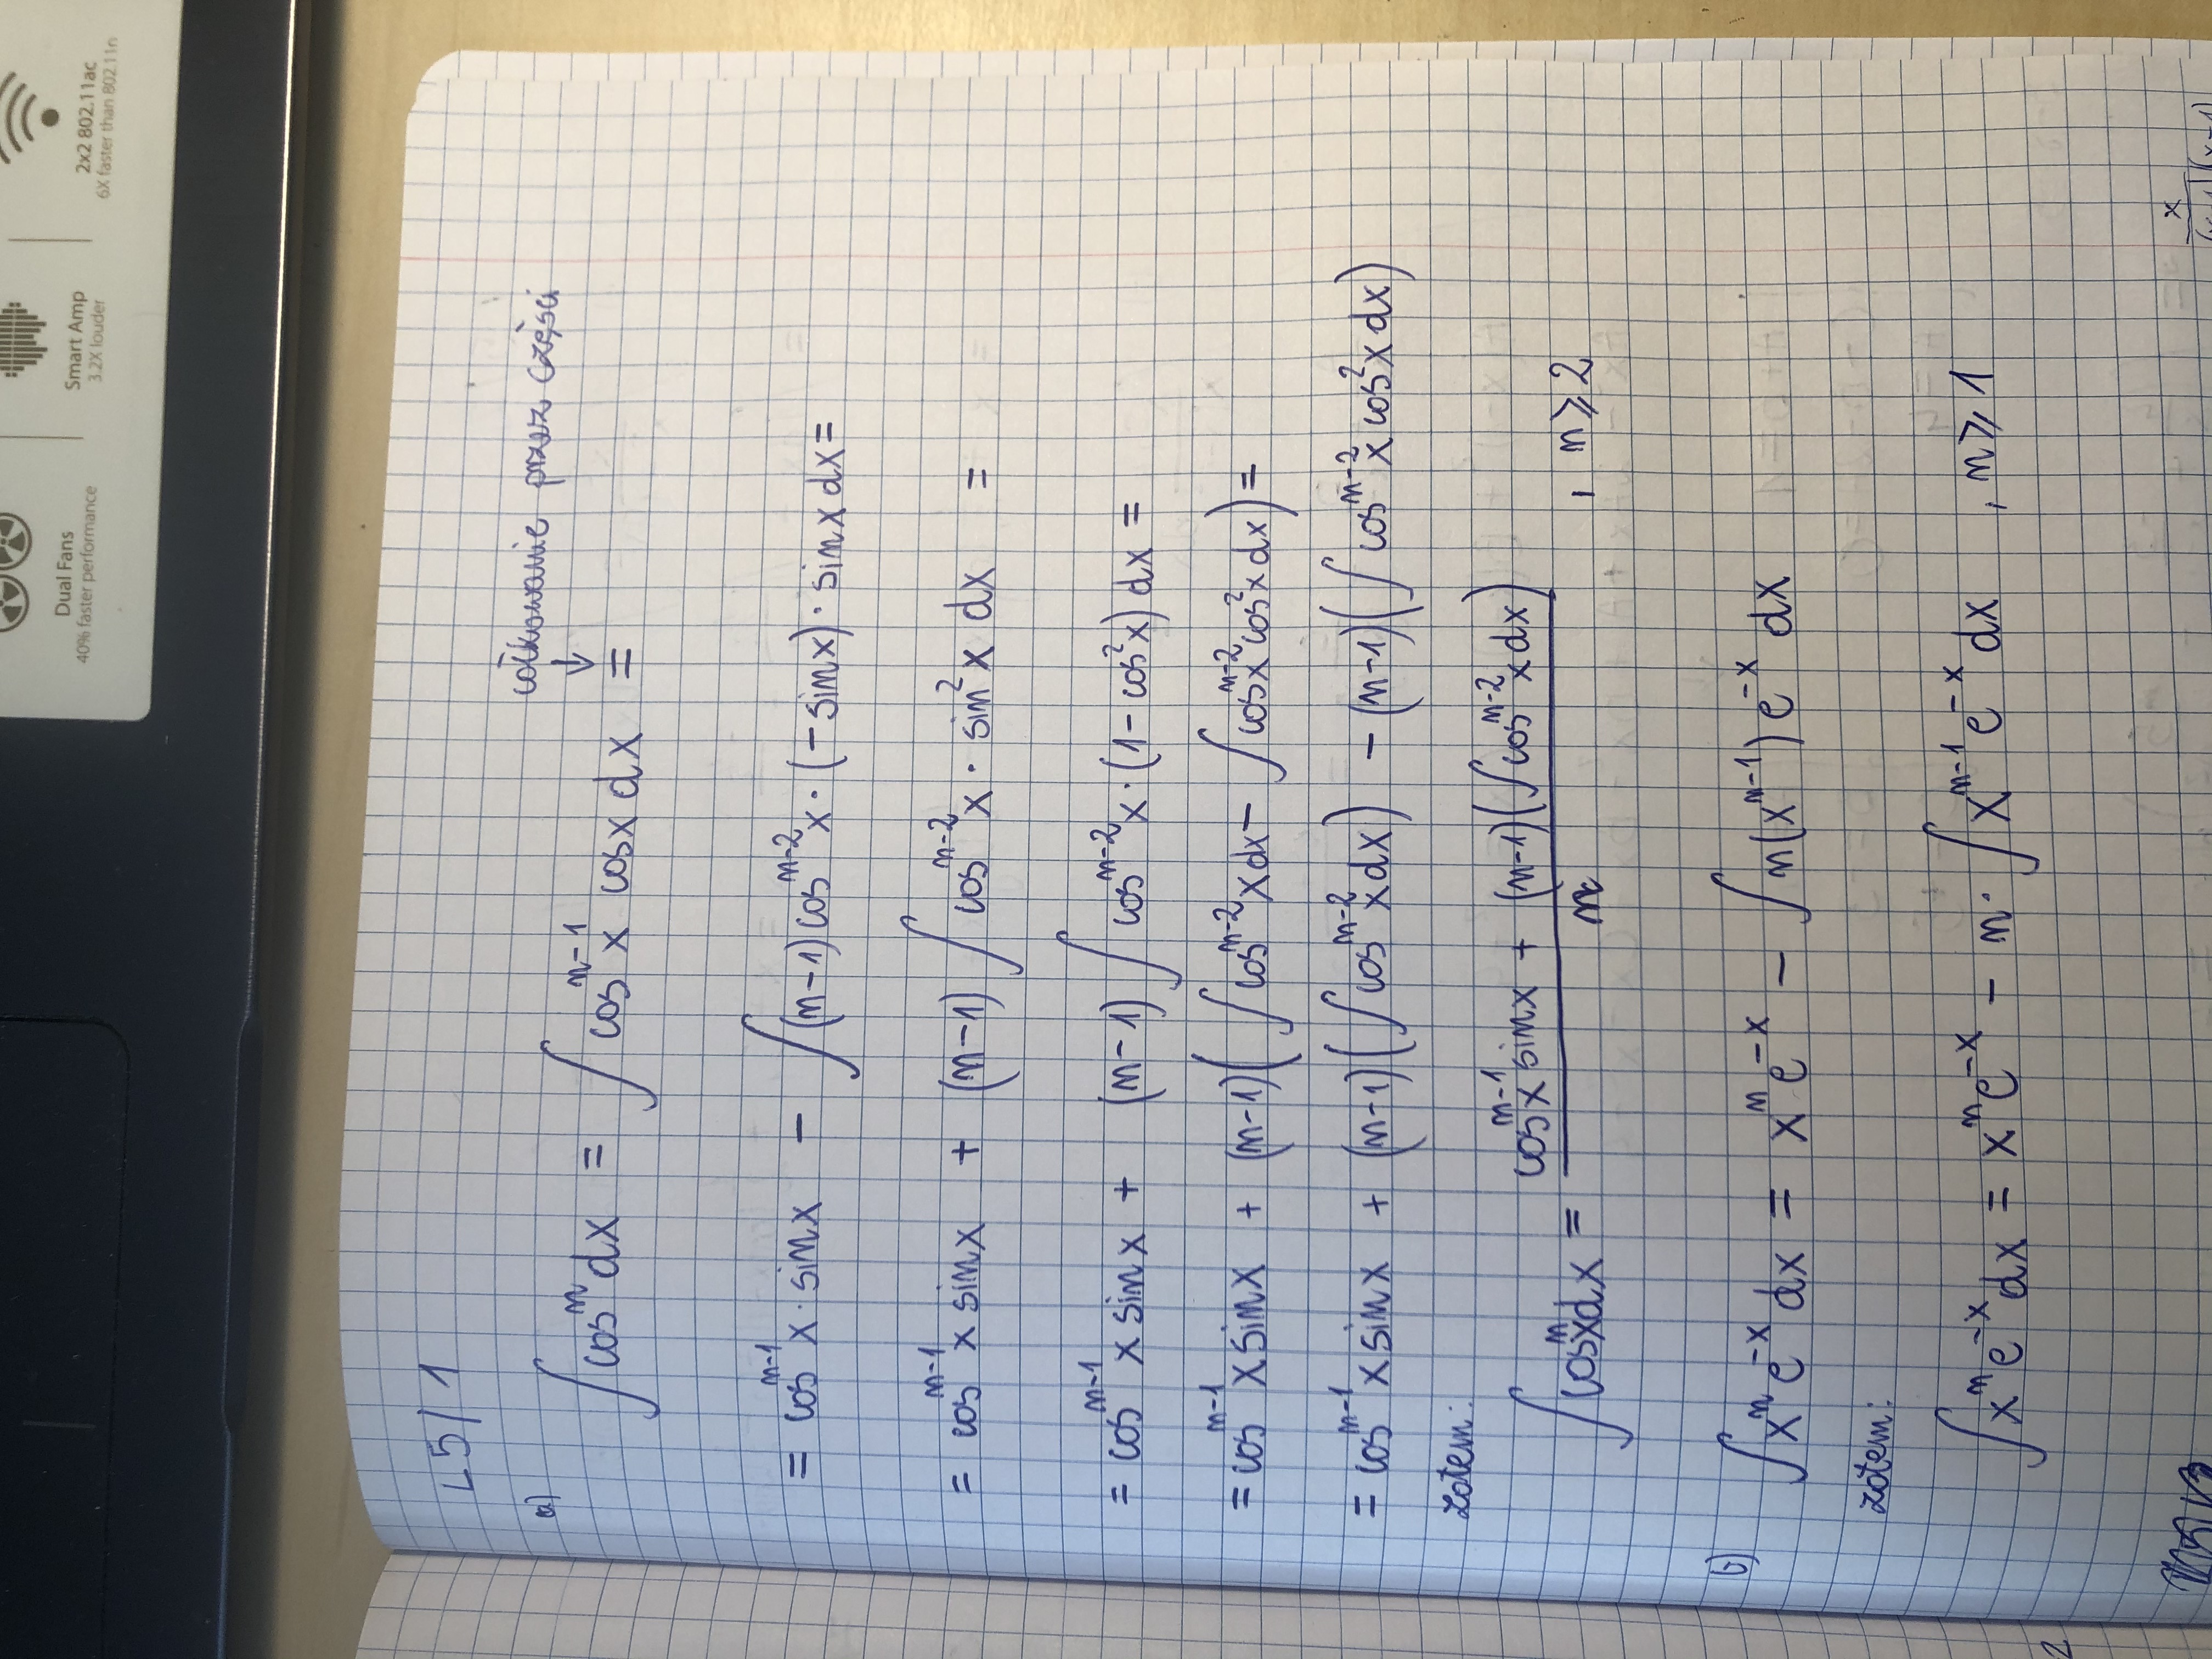 Dual Fans
40% faster performance
Smart Amp
3.2X louder
2x2 802.11ac
6X faster than 802.11n
L5/1
całkowanie przez części
↓
a) ∫cosⁿ dx = ∫cosⁿ⁻¹x cosx dx =
= cosⁿ⁻¹x · sinx − ∫(n−1)cosⁿ⁻²x · (−sinx) · sinx dx =
= cosⁿ⁻¹x sinx + (n−1)∫cosⁿ⁻²x · sin²x dx =
= cosⁿ⁻¹x sinx + (n−1)∫cosⁿ⁻²x · (1−cos²x) dx =
= cosⁿ⁻¹x sinx + (n−1)(∫cosⁿ⁻²x dx − ∫cosⁿ⁻²x cos²x dx) =
= cosⁿ⁻¹x sinx + (n−1)(∫cosⁿ⁻²x dx) − (n−1)(∫cosⁿ⁻²x cos²x dx)
zatem:
∫cosⁿx dx = (cosⁿ⁻¹x sinx + (n−1)(∫cosⁿ⁻²x dx))/n , n ⩾ 2
b) ∫xⁿe⁻ˣ dx = xⁿe⁻ˣ − ∫n(xⁿ⁻¹)e⁻ˣ dx
zatem:
∫xⁿe⁻ˣ dx = xⁿe⁻ˣ − n · ∫xⁿ⁻¹e⁻ˣ dx , n ⩾ 1
2
x